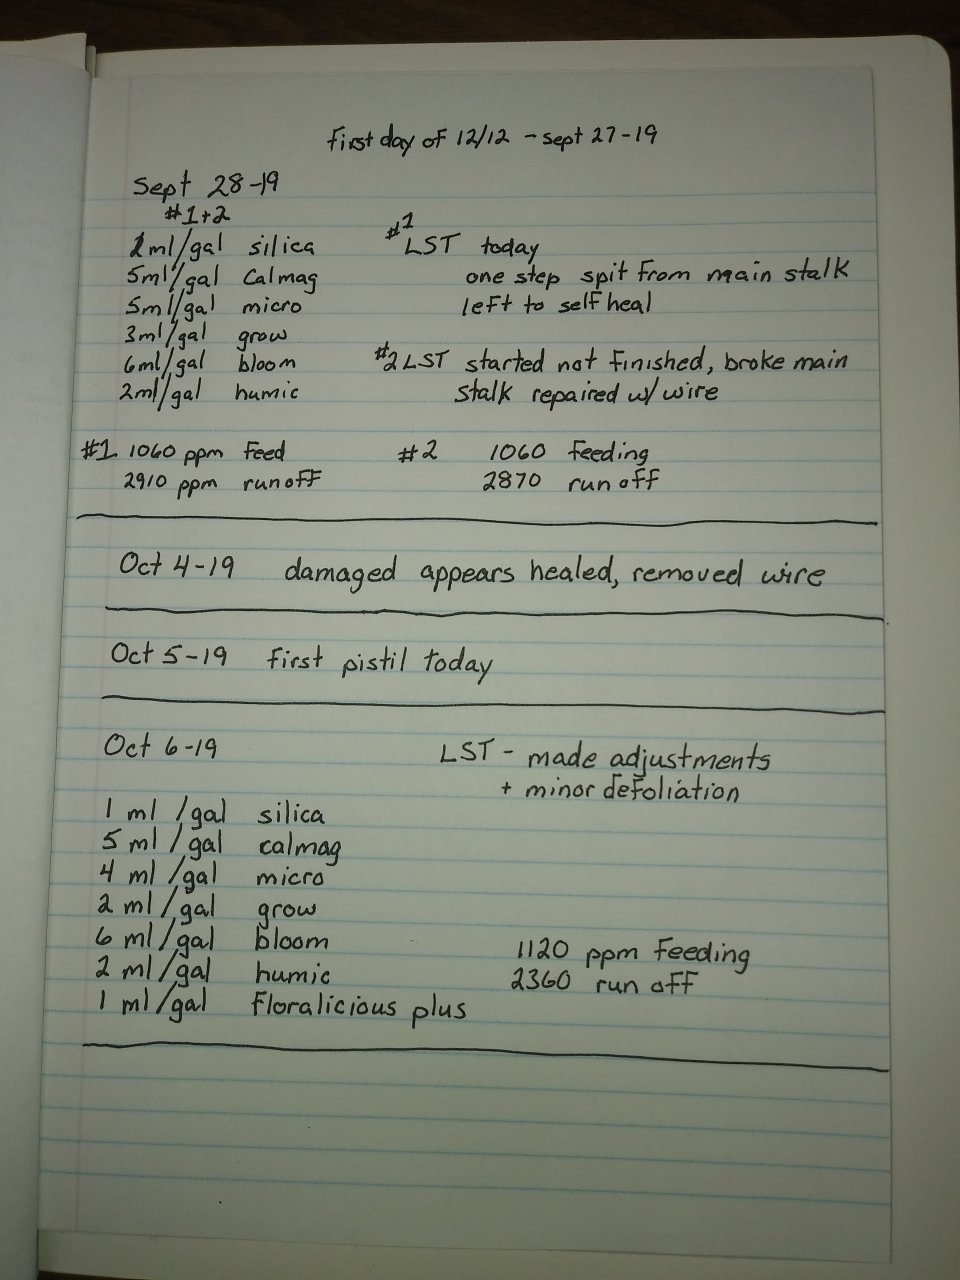 First day of 12/12 - sept 27-19
Sept 28-19
#1+2
2ml/gal silica
5ml/gal Calmag
5ml/gal micro
3ml/gal grow
6ml/gal bloom
2ml/gal humic
#1
LST today
one step spit from main stalk
left to self heal
#2 LST started not finished, broke main
stalk repaired w/ wire
#1 1060 ppm feed
2910 ppm runoff
#2 1060 feeding
2870 run off
Oct 4-19 damaged appears healed, removed wire
Oct 5-19 first pistil today
Oct 6-19
LST - made adjustments
+ minor defoliation
1 ml /gal silica
5 ml /gal calmag
4 ml /gal micro
2 ml /gal grow
6 ml /gal bloom
2 ml /gal humic
1 ml /gal floralicious plus
1120 ppm feeding
2360 run off